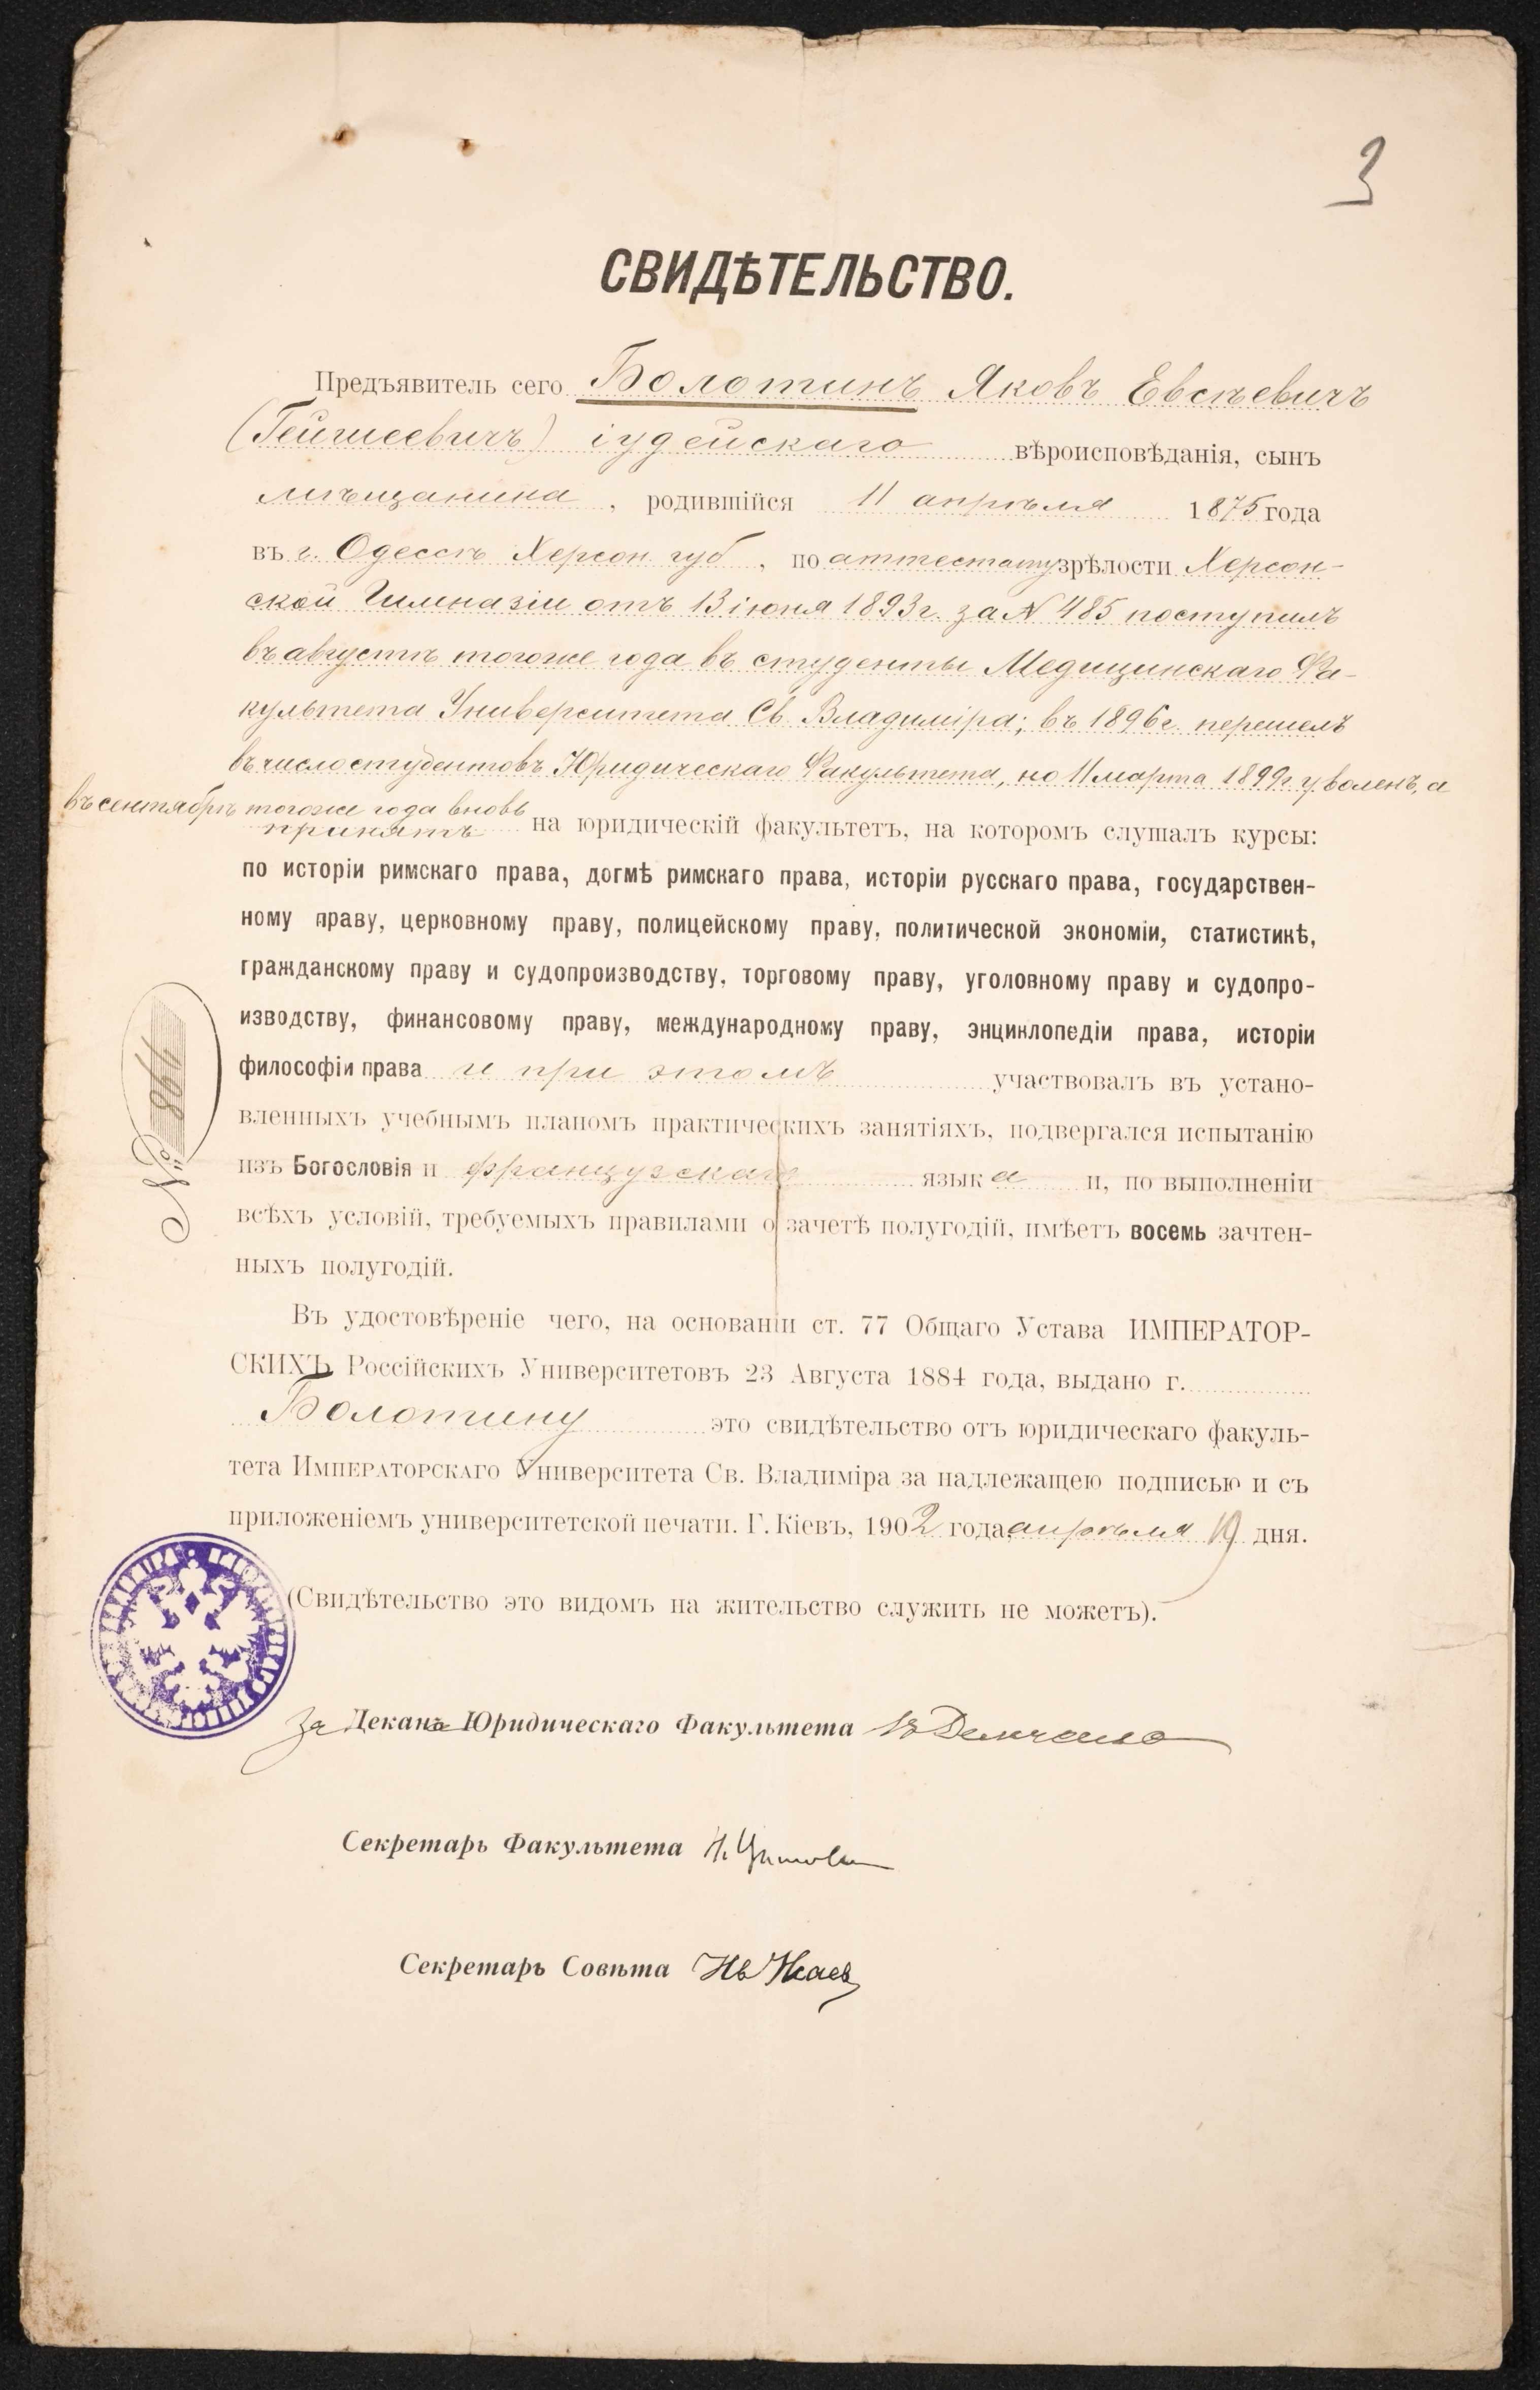 3
СВИДѢТЕЛЬСТВО.
Предъявитель сего Болотинъ Яковъ Евсѣевичъ
(Гейшеевичъ) іудейскаго вѣроисповѣданія, сынъ
мѣщанина, родившійся 11 апрѣля 1875 года
въ г. Одессѣ Херсон. губ, по аттестату зрѣлости Херсон-
ской Гимназіи отъ 13 іюня 1893 г. за № 485 поступилъ
въ августѣ того же года въ студенты Медицинскаго Фа-
культета Университета Св. Владиміра; въ 1896 г. перешелъ
въ число студентовъ Юридическаго Факультета, но 11 марта 1899 г. уволенъ, а
въ сентябрѣ того же года вновь
принятъ на юридическій факультетъ, на которомъ слушалъ курсы:
по исторіи римскаго права, догмѣ римскаго права, исторіи русскаго права, государствен-
ному праву, церковному праву, полицейскому праву, политической экономіи, статистикѣ,
гражданскому праву и судопроизводству, торговому праву, уголовному праву и судопро-
изводству, финансовому праву, международному праву, энциклопедіи права, исторіи
философіи права и при этомъ участвовалъ въ устано-
вленныхъ учебнымъ планомъ практическихъ занятіяхъ, подвергался испытанію
изъ Богословія и французскаго языка и, по выполненіи
всѣхъ условій, требуемыхъ правилами о зачетѣ полугодій, имѣетъ восемь зачтен-
ныхъ полугодій.
№ 866
Въ удостовѣреніе чего, на основаніи ст. 77 Общаго Устава ИМПЕРАТОР-
СКИХЪ Россійскихъ Университетовъ 23 Августа 1884 года, выдано г.
Болотину это свидѣтельство отъ юридическаго факуль-
тета Императорскаго Университета Св. Владиміра за надлежащею подписью и съ
приложеніемъ университетской печати. Г. Кіевъ, 1902 года, апрѣля 19 дня.
(Свидѣтельство это видомъ на жительство служить не можетъ).
За Декана Юридическаго Факультета
Секретарь Факультета
Секретарь Совѣта